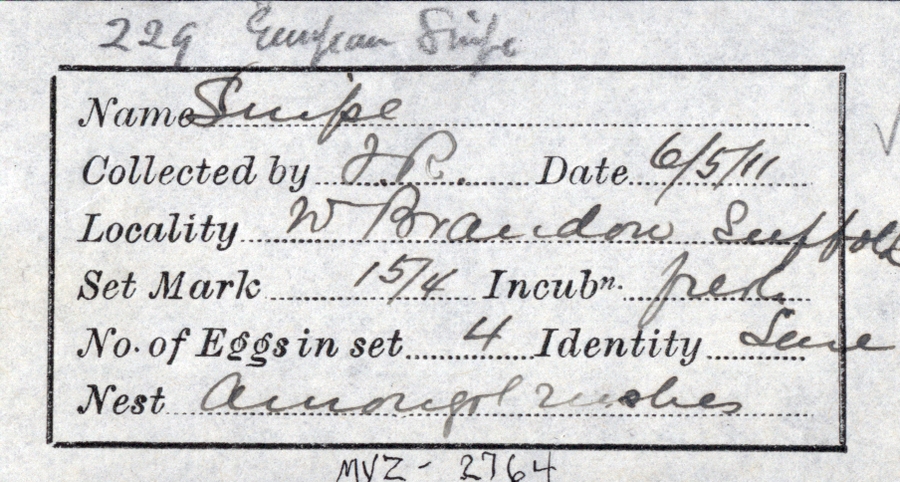 229 European Snipe
Name Snipe
Collected by J.R. Date 6/5/11
Locality W Brandon Suffolk
Set Mark 15/4 Incubn. fresh
No. of Eggs in set 4 Identity Sure
Nest Amongst rushes
MVZ - 2764